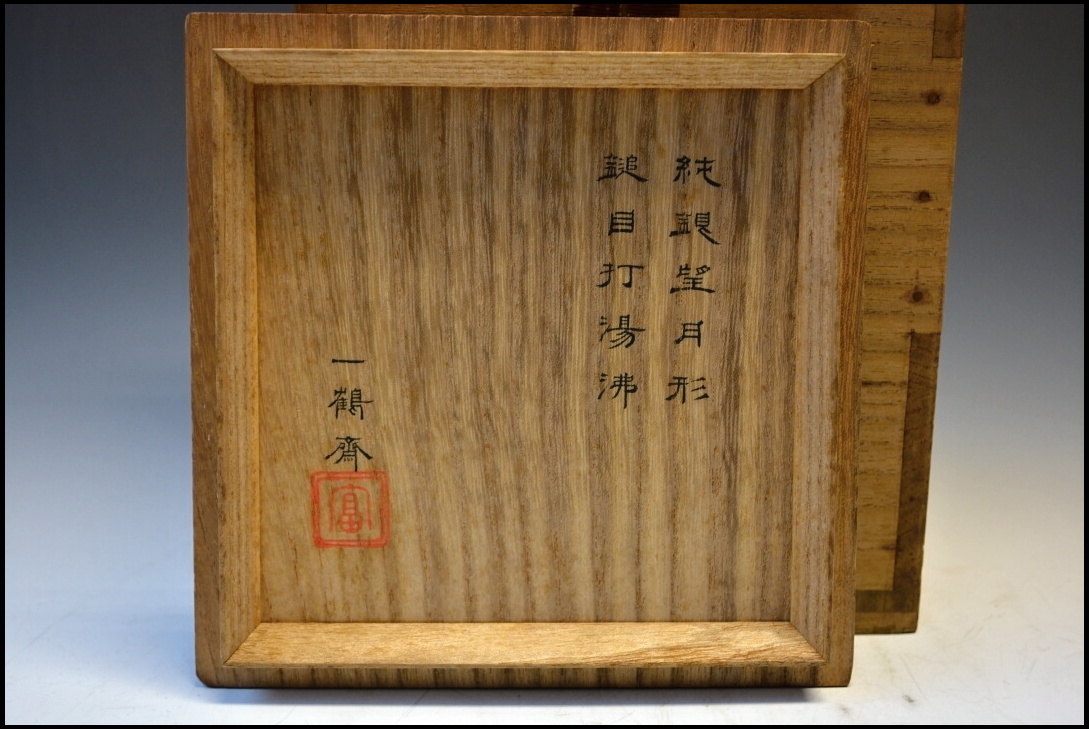 純銀望月形
鎚目打湯沸
一鶴齋
富